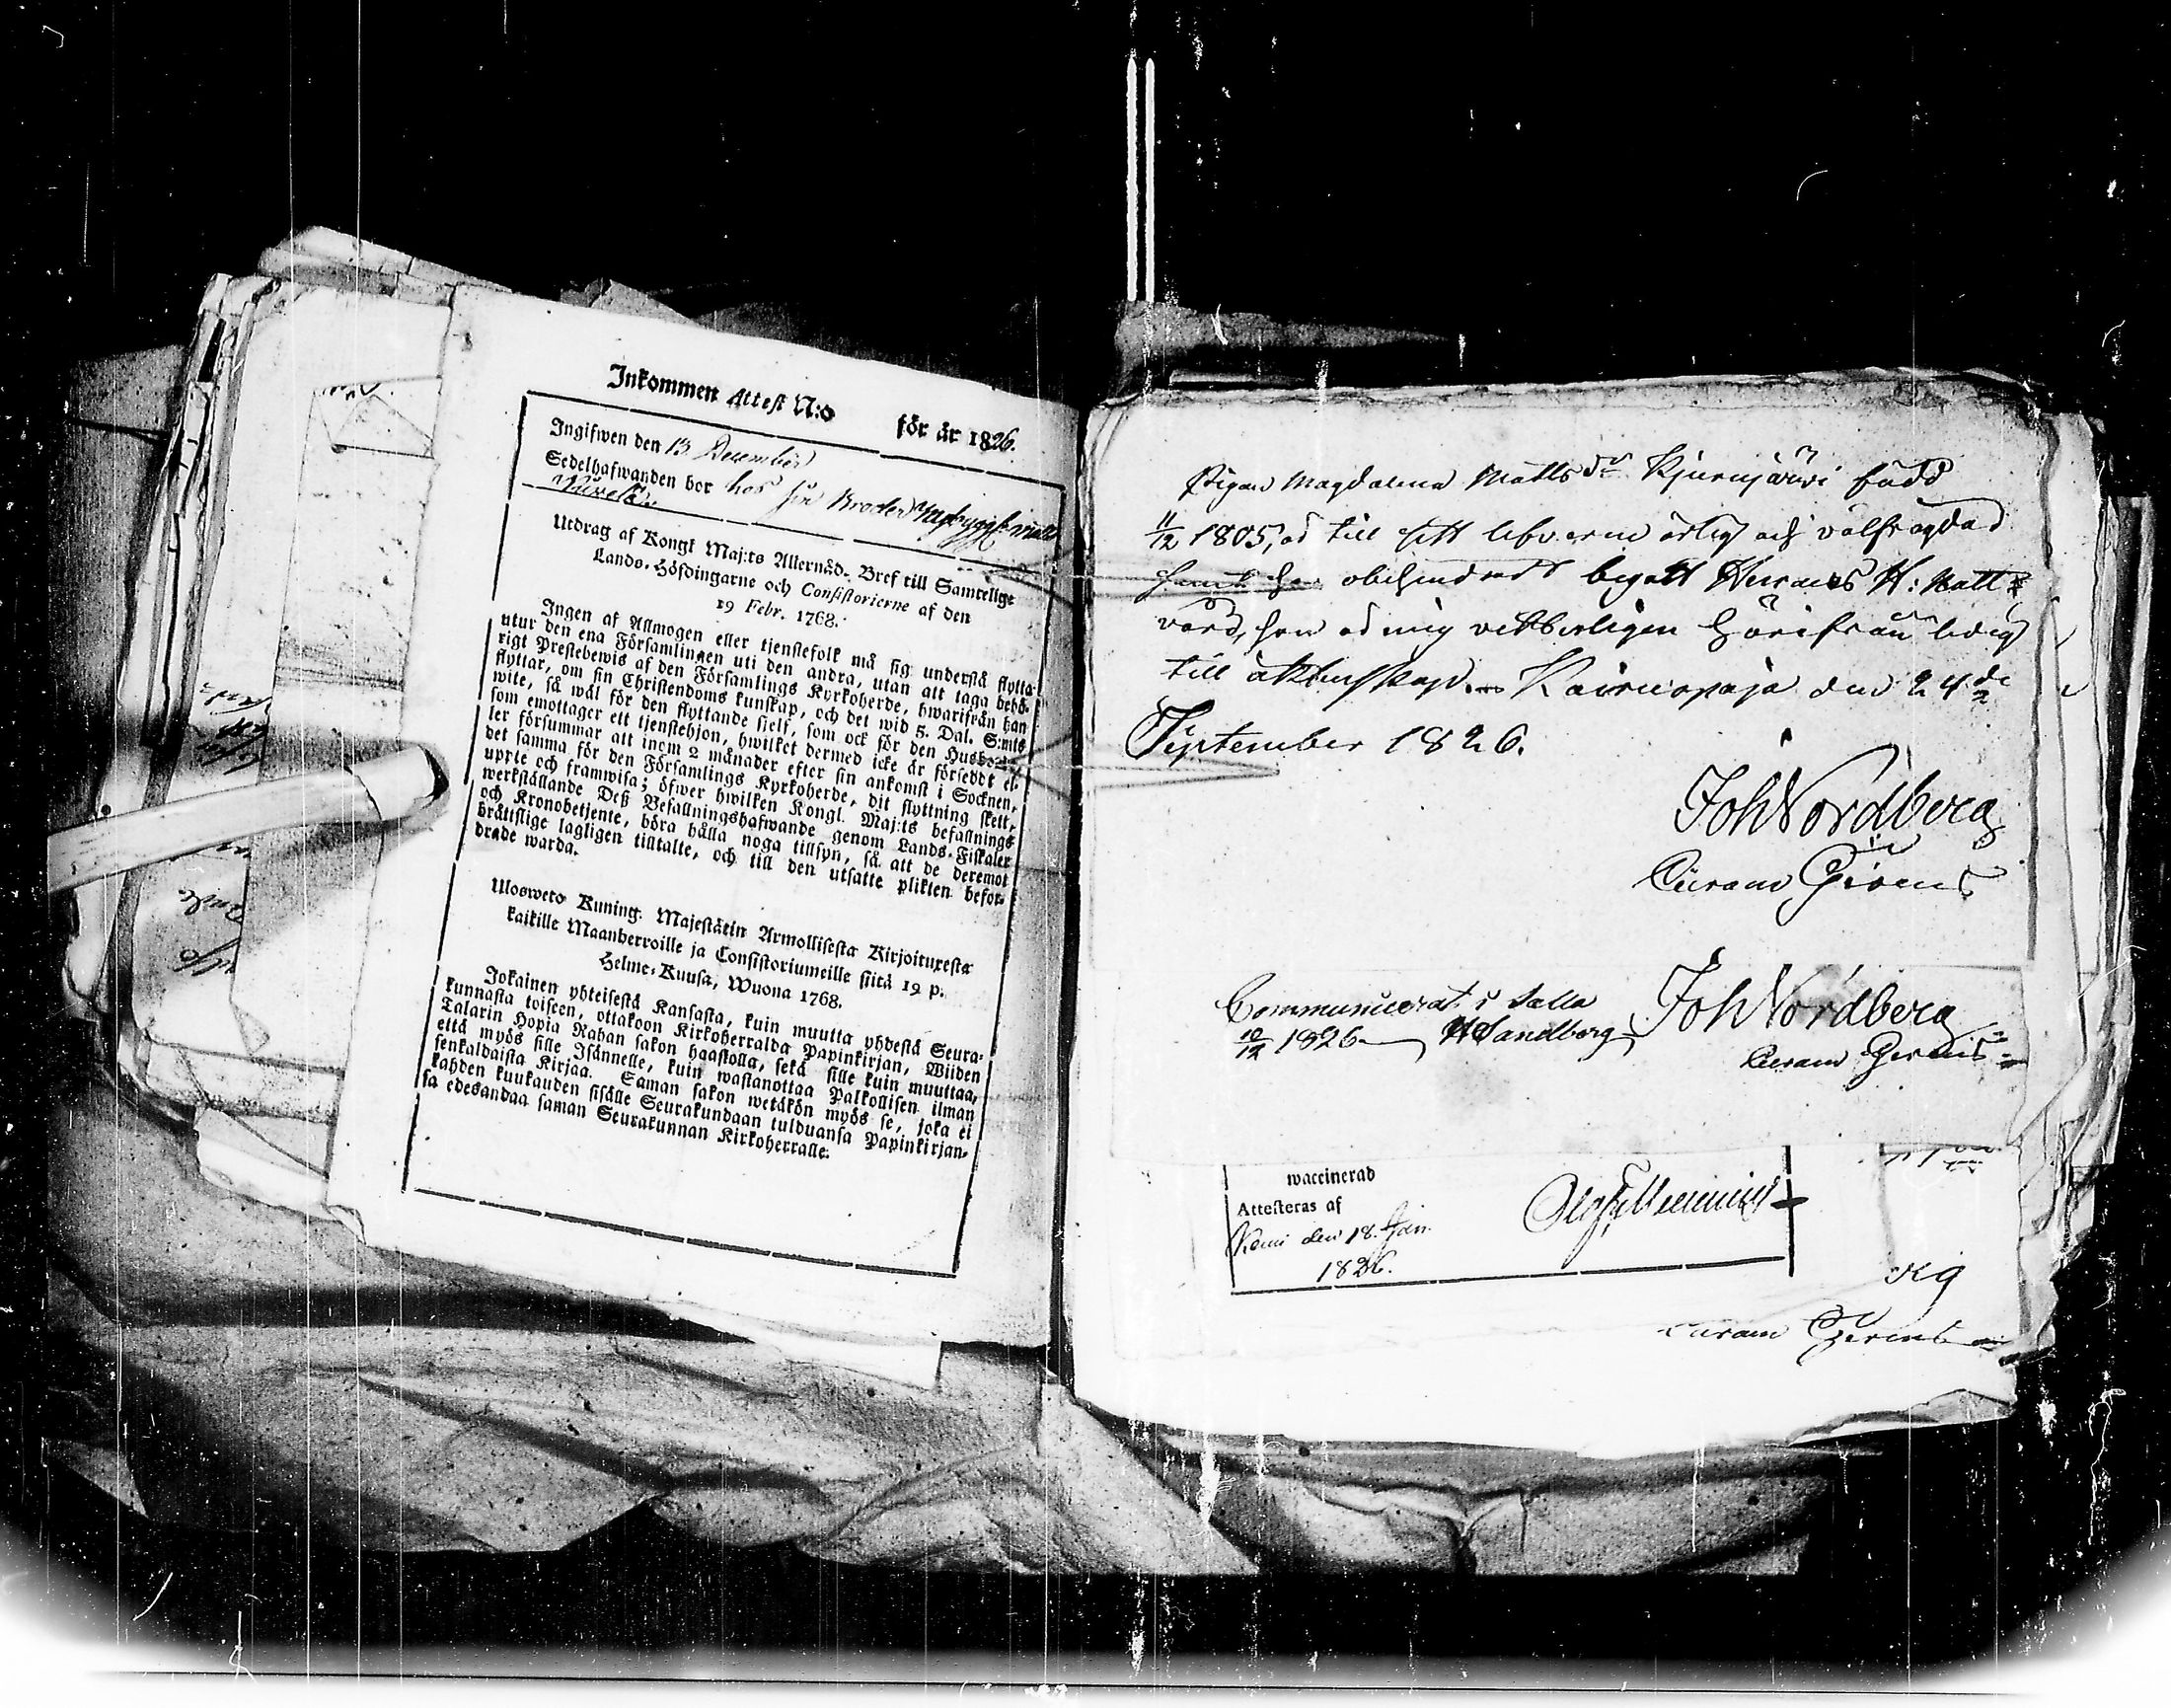 Inkommen Attest N:o för år 1826.
Ingifwen den 13 December
Sedelhafwanden bor hos sin Broder Nybygg: Matts
Utdrag af Kongl Maj:ts Allernåd. Bref till Samtellge
Lands-Höfdingarne och Consistorierne af den
19 Febr. 1768.
Ingen af Allmogen eller tjenstefolk må sig understå flytta
utur den ena Församlingen uti den andra, utan att taga behö-
rigt Prestebewis af den Församlings Kyrkoherde, hwarifrån han
flyttar, om sin Christendoms kunskap, och det wid 5. Dal. S:mts
wite, så wäl för den flyttande sjelf, som ock för den Husbonde
som emottager ett tjenstehjon, hwilket dermed icke är försedt el-
ler försummar att inom 2 månader efter sin ankomst i Socknen,
det samma för den Församlings Kyrkoherde, dit flyttning skett,
upte och framwisa; öfwer hwilken Kongl. Maj:ts befallnings
werkställande Deß Befallningshafwande genom Lands-Fiskaler
och Kronobetjente, böra hålla noga tillsyn, så att de deremot
bråttslige lagligen tilltalte, och till den utsatte plikten befor-
drade warda.
Ulosweto Kuning. Majestätin Armollisesta Kirjoituxesta
kaikille Maanherroille ja Consistoriumeille siitä 19 p.
Helme-Kuusa, Wuona 1768.
Jokainen yhteisestä Kansasta, kuin muutta yhdestä Seura-
kunnasta toiseen, ottakoon Kirkoherralda Papinkirjan, Wiiden
Talarin Hopia Rahan sakon haastolla, sekä sille kuin muuttaa,
että myös sille Isännelle, kuin wastanottaa Palkollisen ilman
senkaldaista Kirjaa. Saman sakon wetäkön myös se, joka ei
kahden kuukauden sisälle Seurakundaan tulduansa Papinkirjan-
sa edesandaa saman Seurakunnan Kirkoherralle.
Pigan Magdalena Matts dr Kjurujärwi född
11/12 1805, är till sitt lefwerne ärlig och välfrägdad
obehindrad begått Herrans H: Natt-
vard, som af mig vitterligen härifrån ledig
till äktenskap. Kairiopaja den 24 de
September 1826.
Joh Nordberg
Curam Gerens
Communicerat i Salla
10/12 1826 Sandberg
Joh Nordberg
Curam Gerens
waccinerad
Attesteras af
Kemi den 18. Jan.
1826.
rg
Curam Gerens